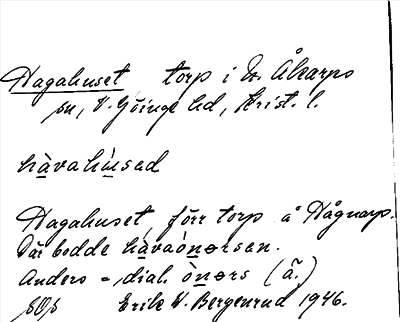 Hagahuset torp i N. Åkarps
sn, V. Göinge hd, Krist. l.
hàvahùsəd
Hagahuset, förr torp å Hågnarp.
Där bodde hàvaònərsən.
Anders = dial. ònərs (å.)
SOs Erik W. Bergenrud 1946.